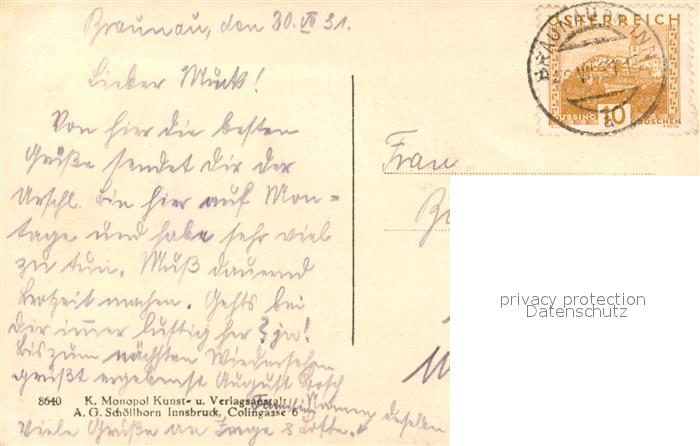 Braunau, den 30.VII 31.
Lieber Muck!
Von hier die besten
Grüße sendet dir der
Urschl. Bin hier auf Mon-
tage und habe sehr viel
zu tun. Muß dauernd
Brotzeit machen. Gehts bei
dir immer lustig her? ja!
Bis zum nächsten Wiedersehen
grüßt ergebenst August
Familien Namen desselben
viele Grüße an &
8640 K. Monopol Kunst- u. Verlagsanstalt
A. G. Schöllhorn Innsbruck, Colingasse 6
ÖSTERREICH
BRAUNAU AM INN
GÜSSING 10 GROSCHEN
a
Frau
privacy protection
Datenschutz